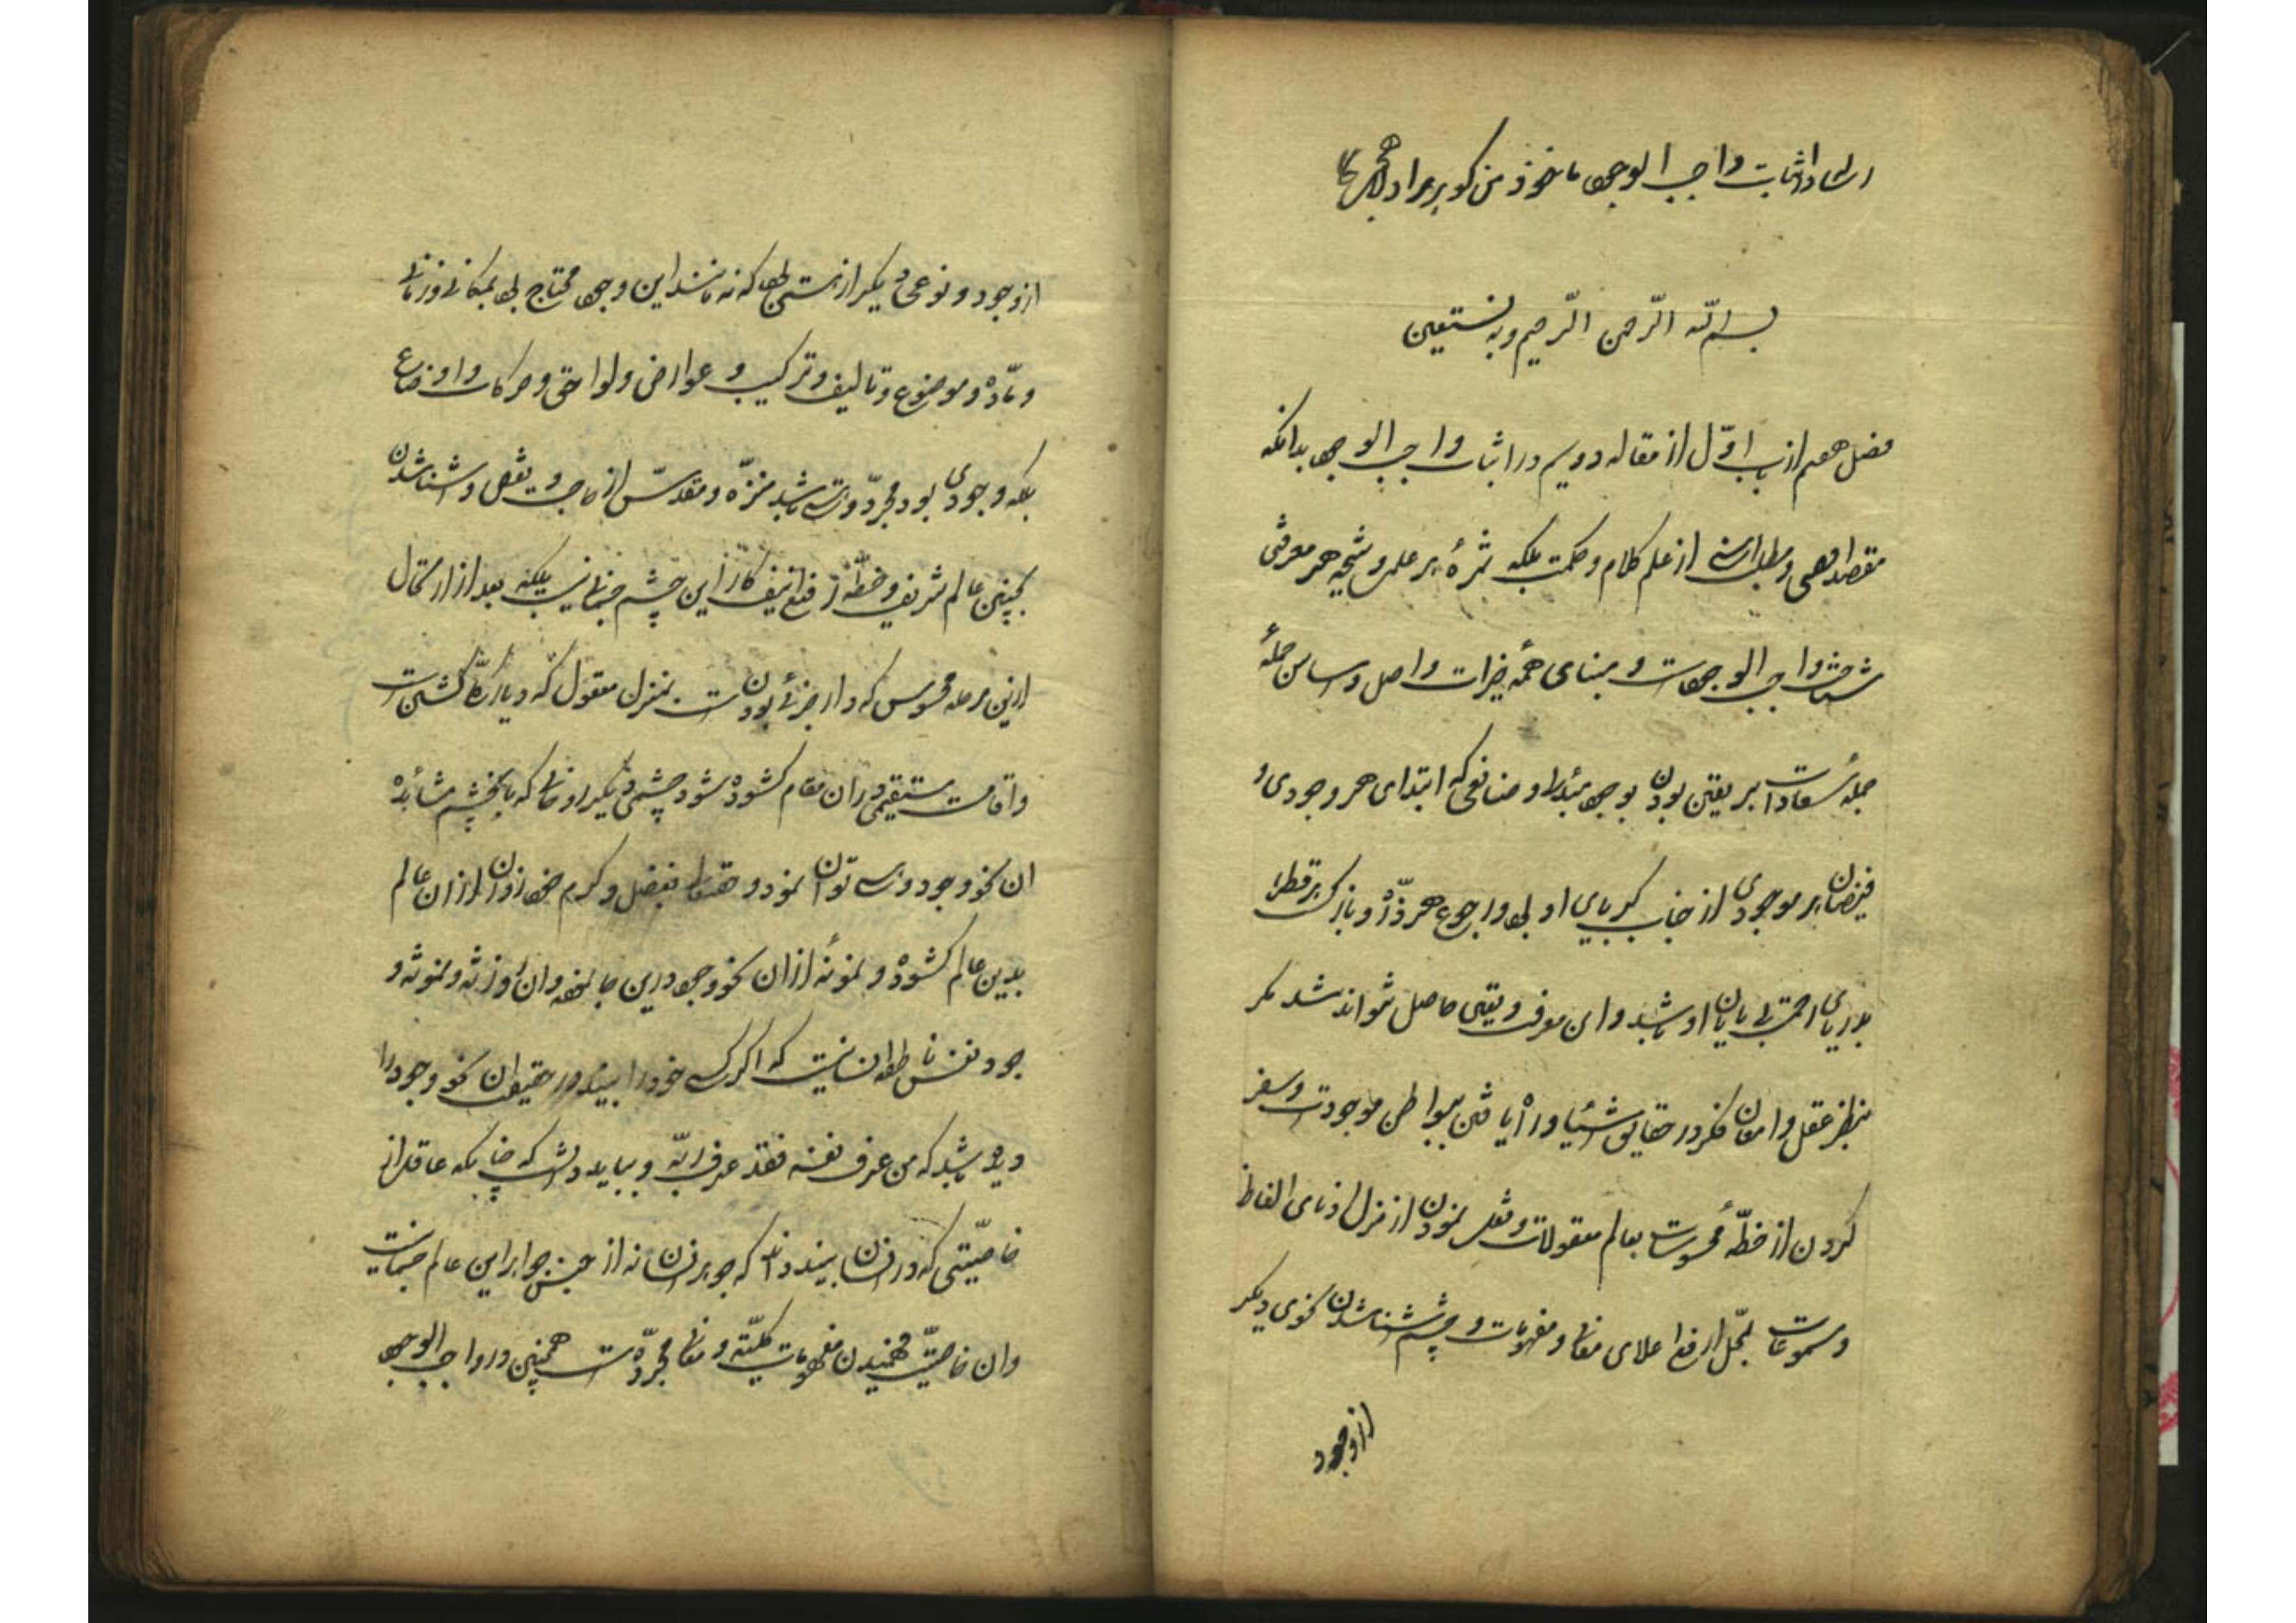 رساله اثبات واجب الوجود ماخوذ من گوهر مراد
بسم الله الرحمن الرحیم وبه نستعین
فصل هفتم از باب اوّل از مقاله دویم در اثبات واجب الوجود بدانکه
مقصد اهم و مطلب از علم کلام و حکمت بلکه ثمرهٔ هر علمی و نتیجه هر معرفتی
شناخت واجب الوجود است و مبنای همهٔ خیرات و اصل و اساس جملهٔ
جملهٔ سعادات بر یقین بودن بوجود مبدأ و صانعی که ابتدای هر وجودی و
فیضان هر موجودی از جناب کبریای او بود و رجوع هر ذرّه و بازگشت هر قطره
بدریای رحمت بی پایان او باشد و این معرفت و یقین حاصل نتواند شد مگر
بنظر عقل و امعان فکر در حقایق اشیا و راه یافتن ببواطن موجودات و سفر
کردن از خطّهٔ محسوسات بعالم معقولات و نقل نمودن از منزل ادنای الفاظ
و مسموعات بمحل ارفع اعلای معانی و مفهومات و چشم شناشدن نحوی دیگر
از وجود
از وجود و نوعی دیگر از هستی که نه مانند این وجود محتاج بود بمکانی و زمانی
و مادّه و موضوع و تالیف و ترکیب و عوارض و لواحق و حرکات و اوضاع
بلکه وجودی بود مجرّد و هستی باشد منزّه و مقدّس از حاجت و نقص و شناشدن
بچنین عالم شریف و خطّه رفیع منیف کار این چشم جسمانی نیست بلکه بعد از ارتحال
ازین مرحله محسوس که دار جزئی بودن است بمنزل معقول که دیار کلّی گشتن است
و اقامت مستقیمی در ان مقام گشوده شود چشمی دیگر روحانی که بآنچشم مشاهده
ان نحو وجود و هستی توان نمود و حقتعالی بفضل و کرم خود روزنی از ان عالم
بدین عالم گشوده و نمونهٔ از ان نحو وجود درین جا نموده و ان روزنه و نمونه و
جود نفس ناطقه انسانیست که اگر کسی خود را ببیند در حقیقت ان نحو وجود را
دیده باشد که من عرف نفسه فقد عرف ربّه و بباید دانست که چنانکه عاقل از
خاصیّتی که در انسان ببیند داند که جوهر انسان نه از جنس جواهر این عالم جسمانیست
وان خاصیّت فهمیدن مفهومات کلیّه و معانی مجرّده است همچنین در واجب الوجود